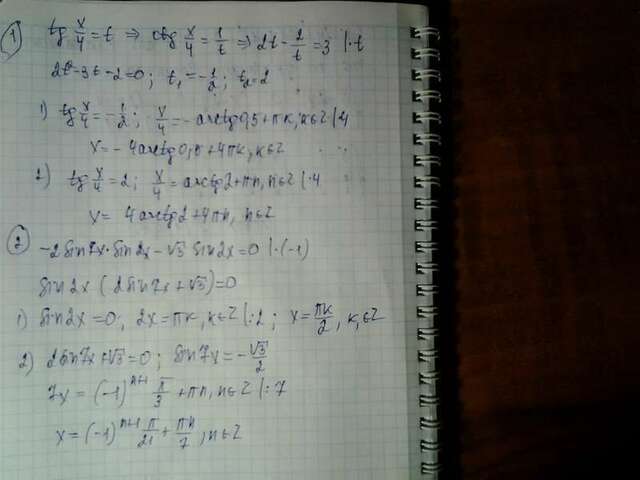 ① tg x/4 = t ⇒ ctg x/4 = 1/t ⇒ 2t - 2/t = 3 |·t
2t² - 3t - 2 = 0; t₁ = -1/2; t₂ = 2
1) tg x/4 = -1/2; x/4 = -arctg 0,5 + πk, k∈Z |·4
x = -4arctg 0,5 + 4πk, k∈Z
2) tg x/4 = 2; x/4 = arctg 2 + πn, n∈Z |·4
x = 4arctg 2 + 4πn, n∈Z
② -2sin7x·sin2x - √3 sin2x = 0 |·(-1)
sin2x (2sin7x + √3) = 0
1) sin2x = 0; 2x = πk, k∈Z |:2; x = πk/2, k∈Z
2) 2sin7x + √3 = 0; sin7x = -√3/2
7x = (-1)ⁿ⁺¹ π/3 + πn, n∈Z |:7
x = (-1)ⁿ⁺¹ π/21 + πn/7, n∈Z